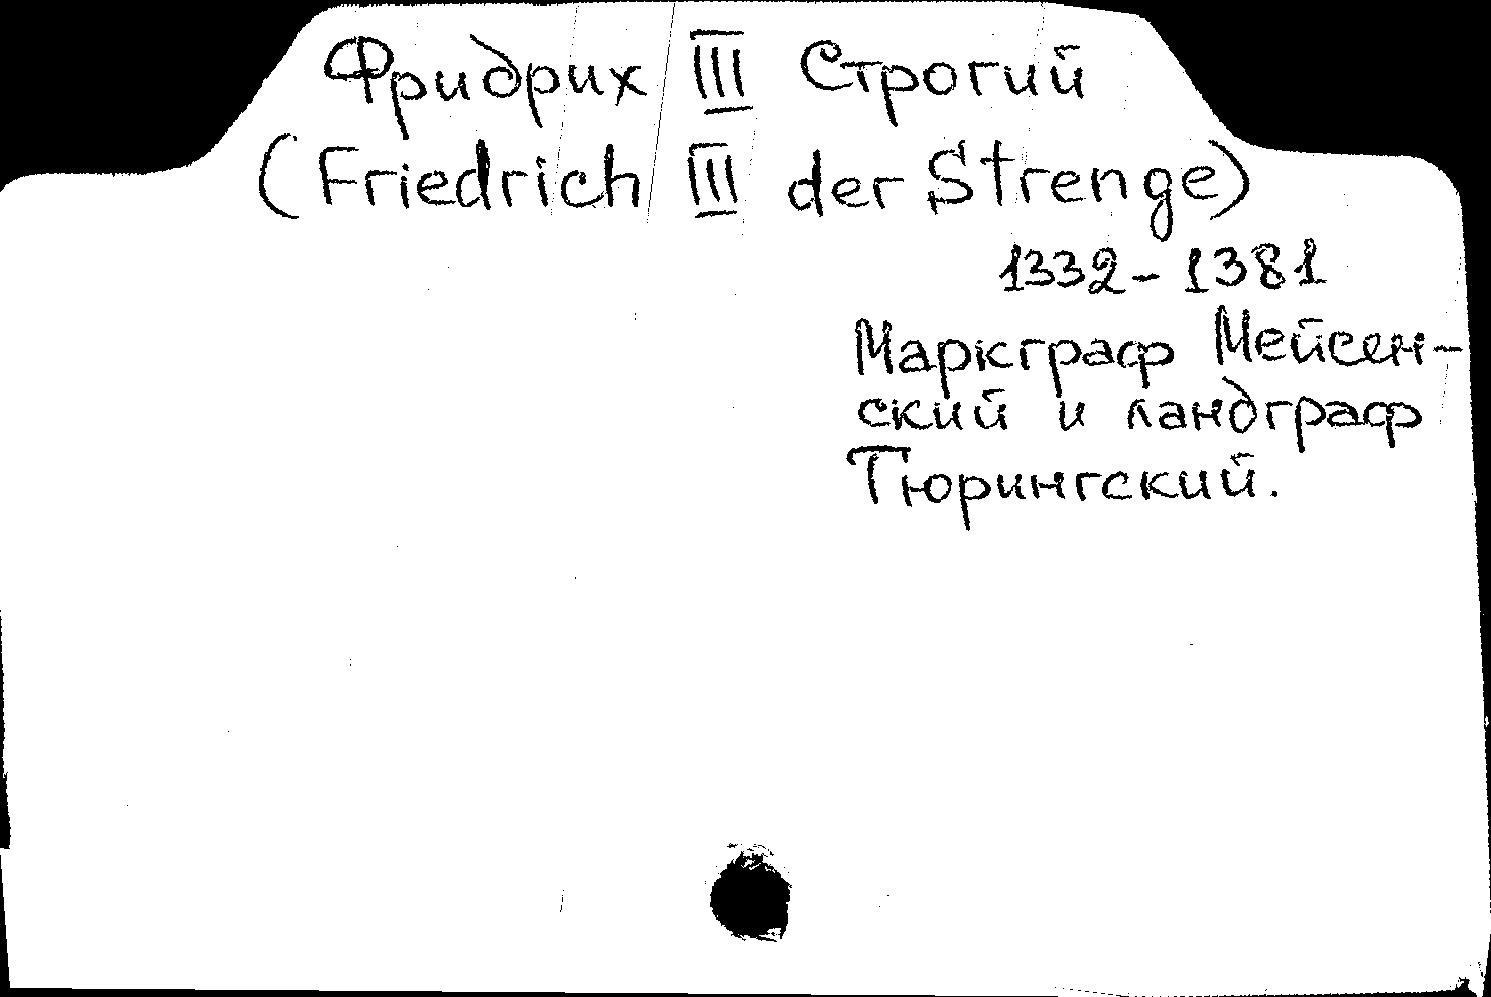 Фридрих III Строгий
(Friedrich III der Strenge)
1332-1381
Маркграф Мейсен-
ский и ландграф
Тюрингский.